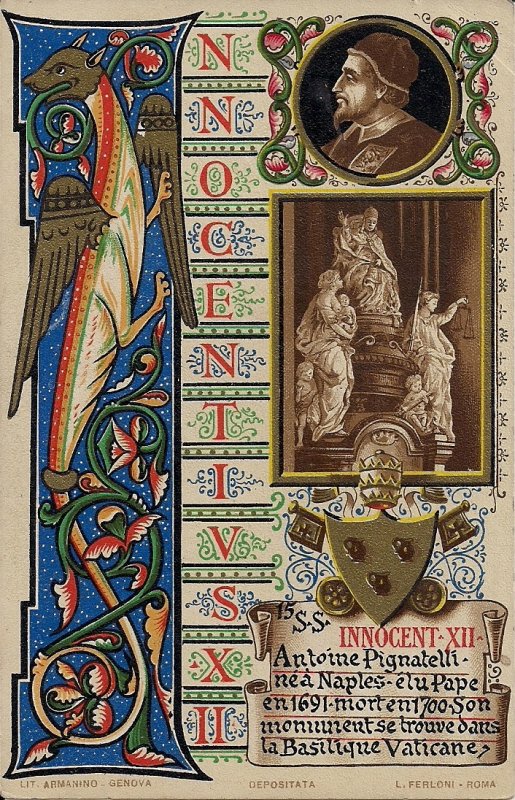 INNOCENTIVS XII
15
S.S.
INNOCENT·XII·
Antoine Pignatelli·
né à Naples·élu Pape
en 1691·mort en 1700·Son
monument se trouve dans
la Basilique Vaticane
LIT. ARMANINO - GENOVA
DEPOSITATA
L. FERLONI - ROMA